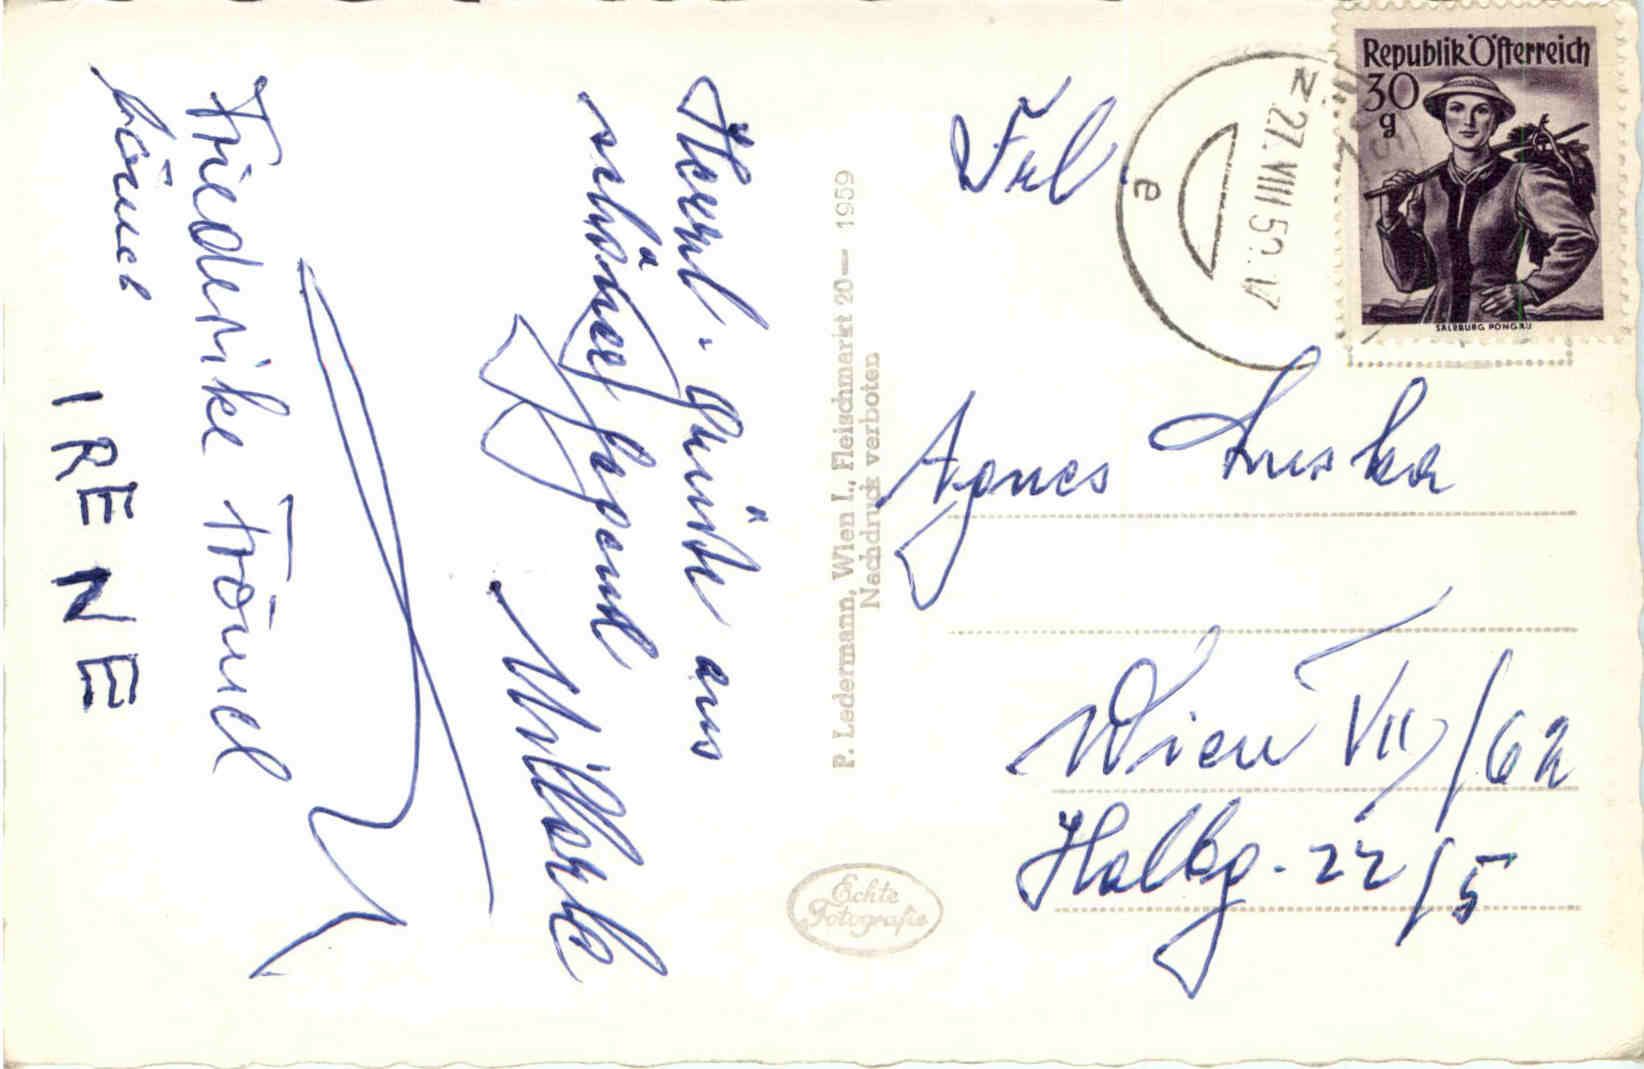 Herzl. Grüße aus
schöner Gegend
Friederike Fröml
IRENE
P. Ledermann, Wien I., Fleischmarkt 20 — 1959
Nachdruck verboten
Echte
Fotografie
Frl.
Agnes
Wien VII/62
Halbg. 22/5
e
27.VIII 59.17
Republik Österreich
30
g
SALZBURG PONGAU